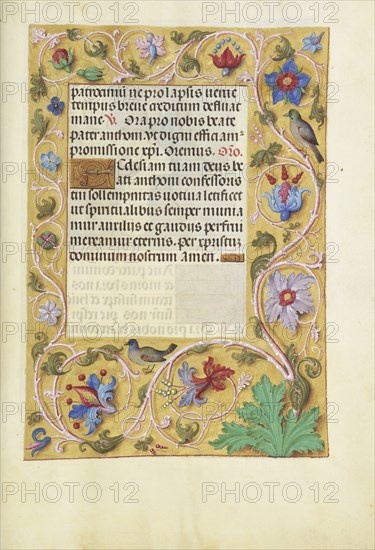 patrociniū ne prolapsis venie
tempus breve creditum destinat
inane. V. Ora pro nobis beate
pater anthoni. Vt digni efficiam
promissione xpi. Oremus. Oro.
Ecclesiam tuam deus be
ati anthoni confessoris
tui sollempnitas votiva letificet
ut spiritualibus semper munia
mur auxilijs et gaudijs perfrui
mereamur eternis. per xpristū
dominum nostrum Amen.
PHOTO 12